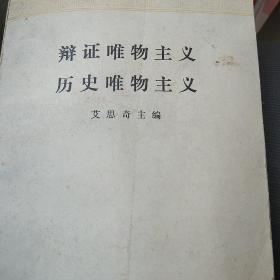 辩证唯物主义
历史唯物主义
艾思奇主编